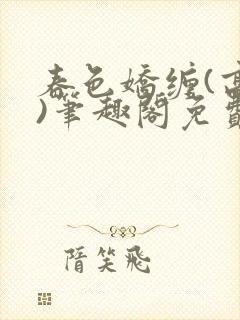 春色嬌缠(高
)筆趣閣免費
隋笑飛